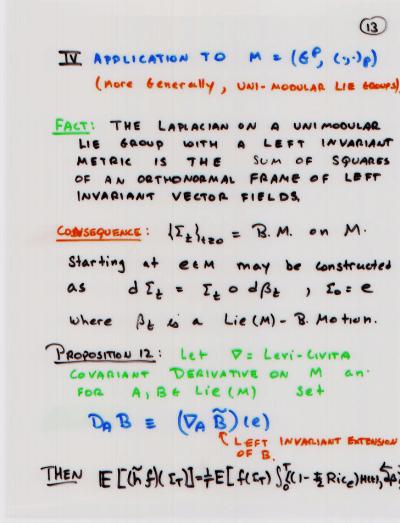 13
IV APPLICATION TO M = (G^P, (·,·)_P)
(more Generally, UNI-MODULAR LIE GROUPS)
FACT: THE LAPLACIAN ON A UNIMODULAR
LIE GROUP WITH A LEFT INVARIANT
METRIC IS THE SUM OF SQUARES
OF AN ORTHONORMAL FRAME OF LEFT
INVARIANT VECTOR FIELDS.
CONSEQUENCE: {Σ_t}_{t≥0} = B.M. on M.
Starting at e∈M may be constructed
as dΣ_t = Σ_t ∘ dβ_t , Σ_0 = e
where β_t is a Lie(M)- B. Motion.
PROPOSITION 12: Let ∇ = Levi-Civita
COVARIANT DERIVATIVE ON M an
FOR A, B ∈ Lie(M) Set
D_A B ≡ (∇_A B̃)(e)
LEFT INVARIANT EXTENSION
OF B.
THEN E[(h̃f)(Σ_T)] = 1/T E[f(Σ_T) ∫_0^T ⟨(1 - t/2 Ric_e) H(t), dβ